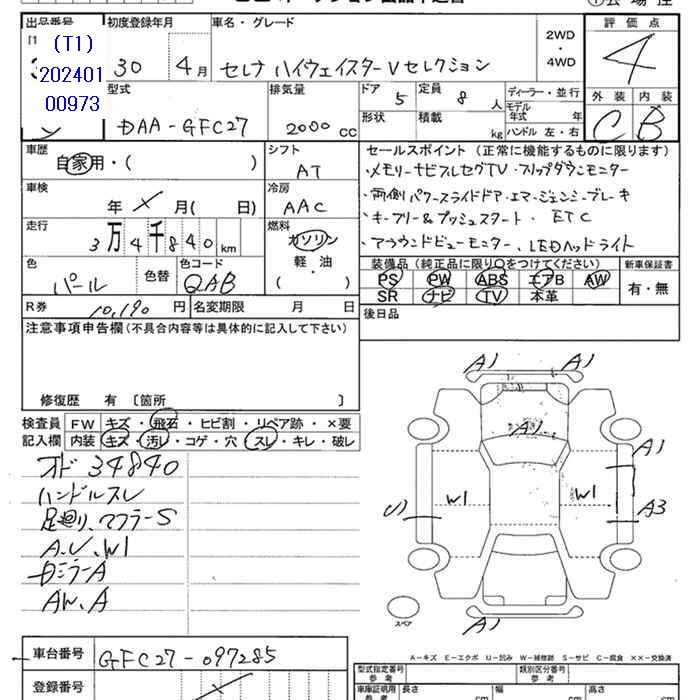 出品番号 初度登録年月 車名・グレード 評価点
(T1)
202401
00973
30年 4月 セレナ ハイウェイスターVセレクション 2WD・4WD 4
型式 排気量 ドア 5 定員 8人 ディーラー・並行 外装 内装
DAA-GFC27 2000cc 形状 積載 kg モデル年式 年 ハンドル 左・右 C B
車歴 シフト セールスポイント (正常に機能するものに限ります)
自家用・( ) AT ・メモリーナビフルセグTV・フリップダウンモニター
車検 冷房 ・両側パワースライドドア・エマージェンシーブレーキ
年 月( 日) AAC ・キーフリー&プッシュスタート・ETC
走行 燃料 ・アラウンドビューモニター、LEDヘッドライト
3万4千840km ガソリン
軽・油
( )
色 色替 色コード 装備品 (純正品に限り○をつけてください) 新車保証書
パール QAB PS PW ABS エアB AW 有・無
SR ナビ TV 本革
R券 10,190円 名変期限 月 日 後日品
注意事項申告欄 (不具合内容等は具体的に記入して下さい)
修復歴 有 〔箇所 〕
検査員 FW キズ・飛石・ヒビ割・リペア跡・×要
記入欄 内装 キズ・汚レ・コゲ・穴・スレ・キレ・破レ
オド 34840
ハンドルスレ
足廻り、マフラーS
A.U.W1
ミラーA
AW.A
A1 A1
A1
A1
U1 W1 W1 A3
スペア
A1
A-キズ E-エクボ U-凹み W-補修跡 S-サビ C-腐食 ××-交換済
車台番号 GFC27-097285
型式指定番号 参考 類別区分番号 参考
登録番号
車庫証明用 参考 長さ cm 幅 cm 高さ cm